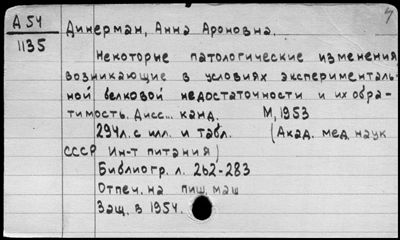 А54
1135
Динерман, Анна Ароновна.
Некоторые патологические изменения,
возникающие в условиях эксперименталь-
ной белковой недостаточности и их обра-
тимость. Дисс... канд. М, 1953
294л. с илл. и табл. (Акад. мед наук
СССР Ин-т питания)
Библиогр. л. 262-283
Отпеч. на пиш. маш
Защ. в 1954.